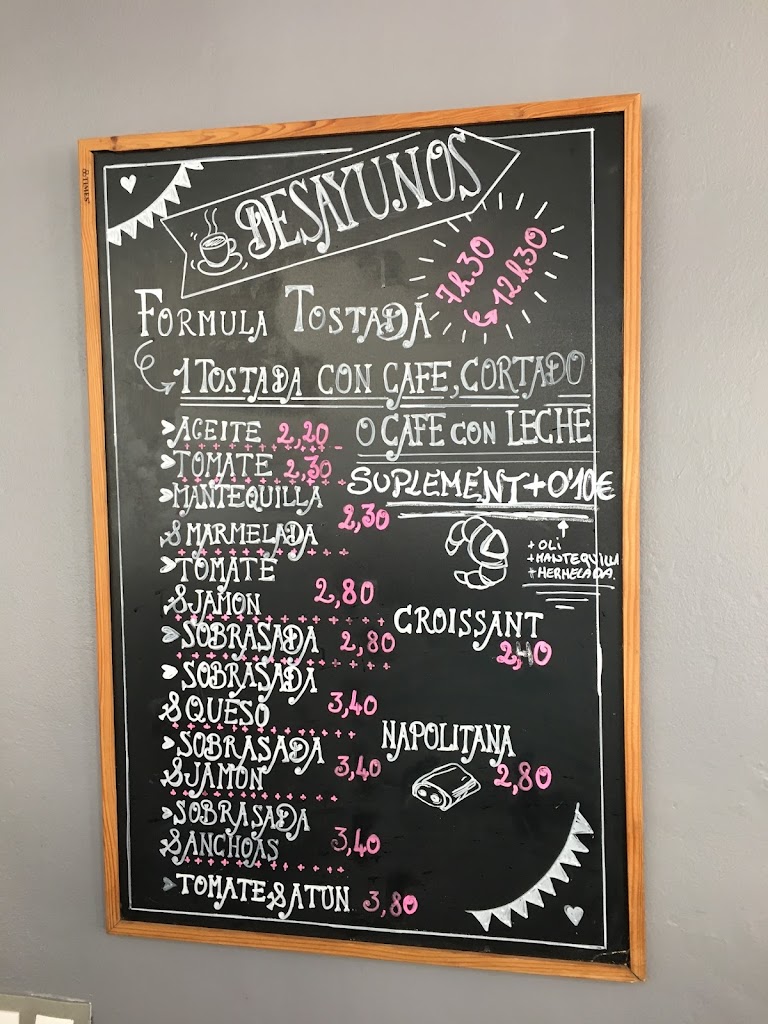 DESAYUNOS
7h30
12h30
FORMULA TOSTADA
1 TOSTADA CON CAFE, CORTADO
O CAFE CON LECHE
SUPLEMENT + 0'10€
+ OLI
+ MANTEQUILLA
+ MERMELADA.
ACEITE 2,20
TOMATE 2,30
MANTEQUILLA
& MARMELADA 2,30
TOMATE
& JAMON 2,80
SOBRASADA 2,80
SOBRASADA
& QUESO 3,40
SOBRASADA
& JAMON 3,40
SOBRASADA
& ANCHOAS 3,40
TOMATE & ATUN 3,80
CROISSANT
2,40
NAPOLITANA
2,80